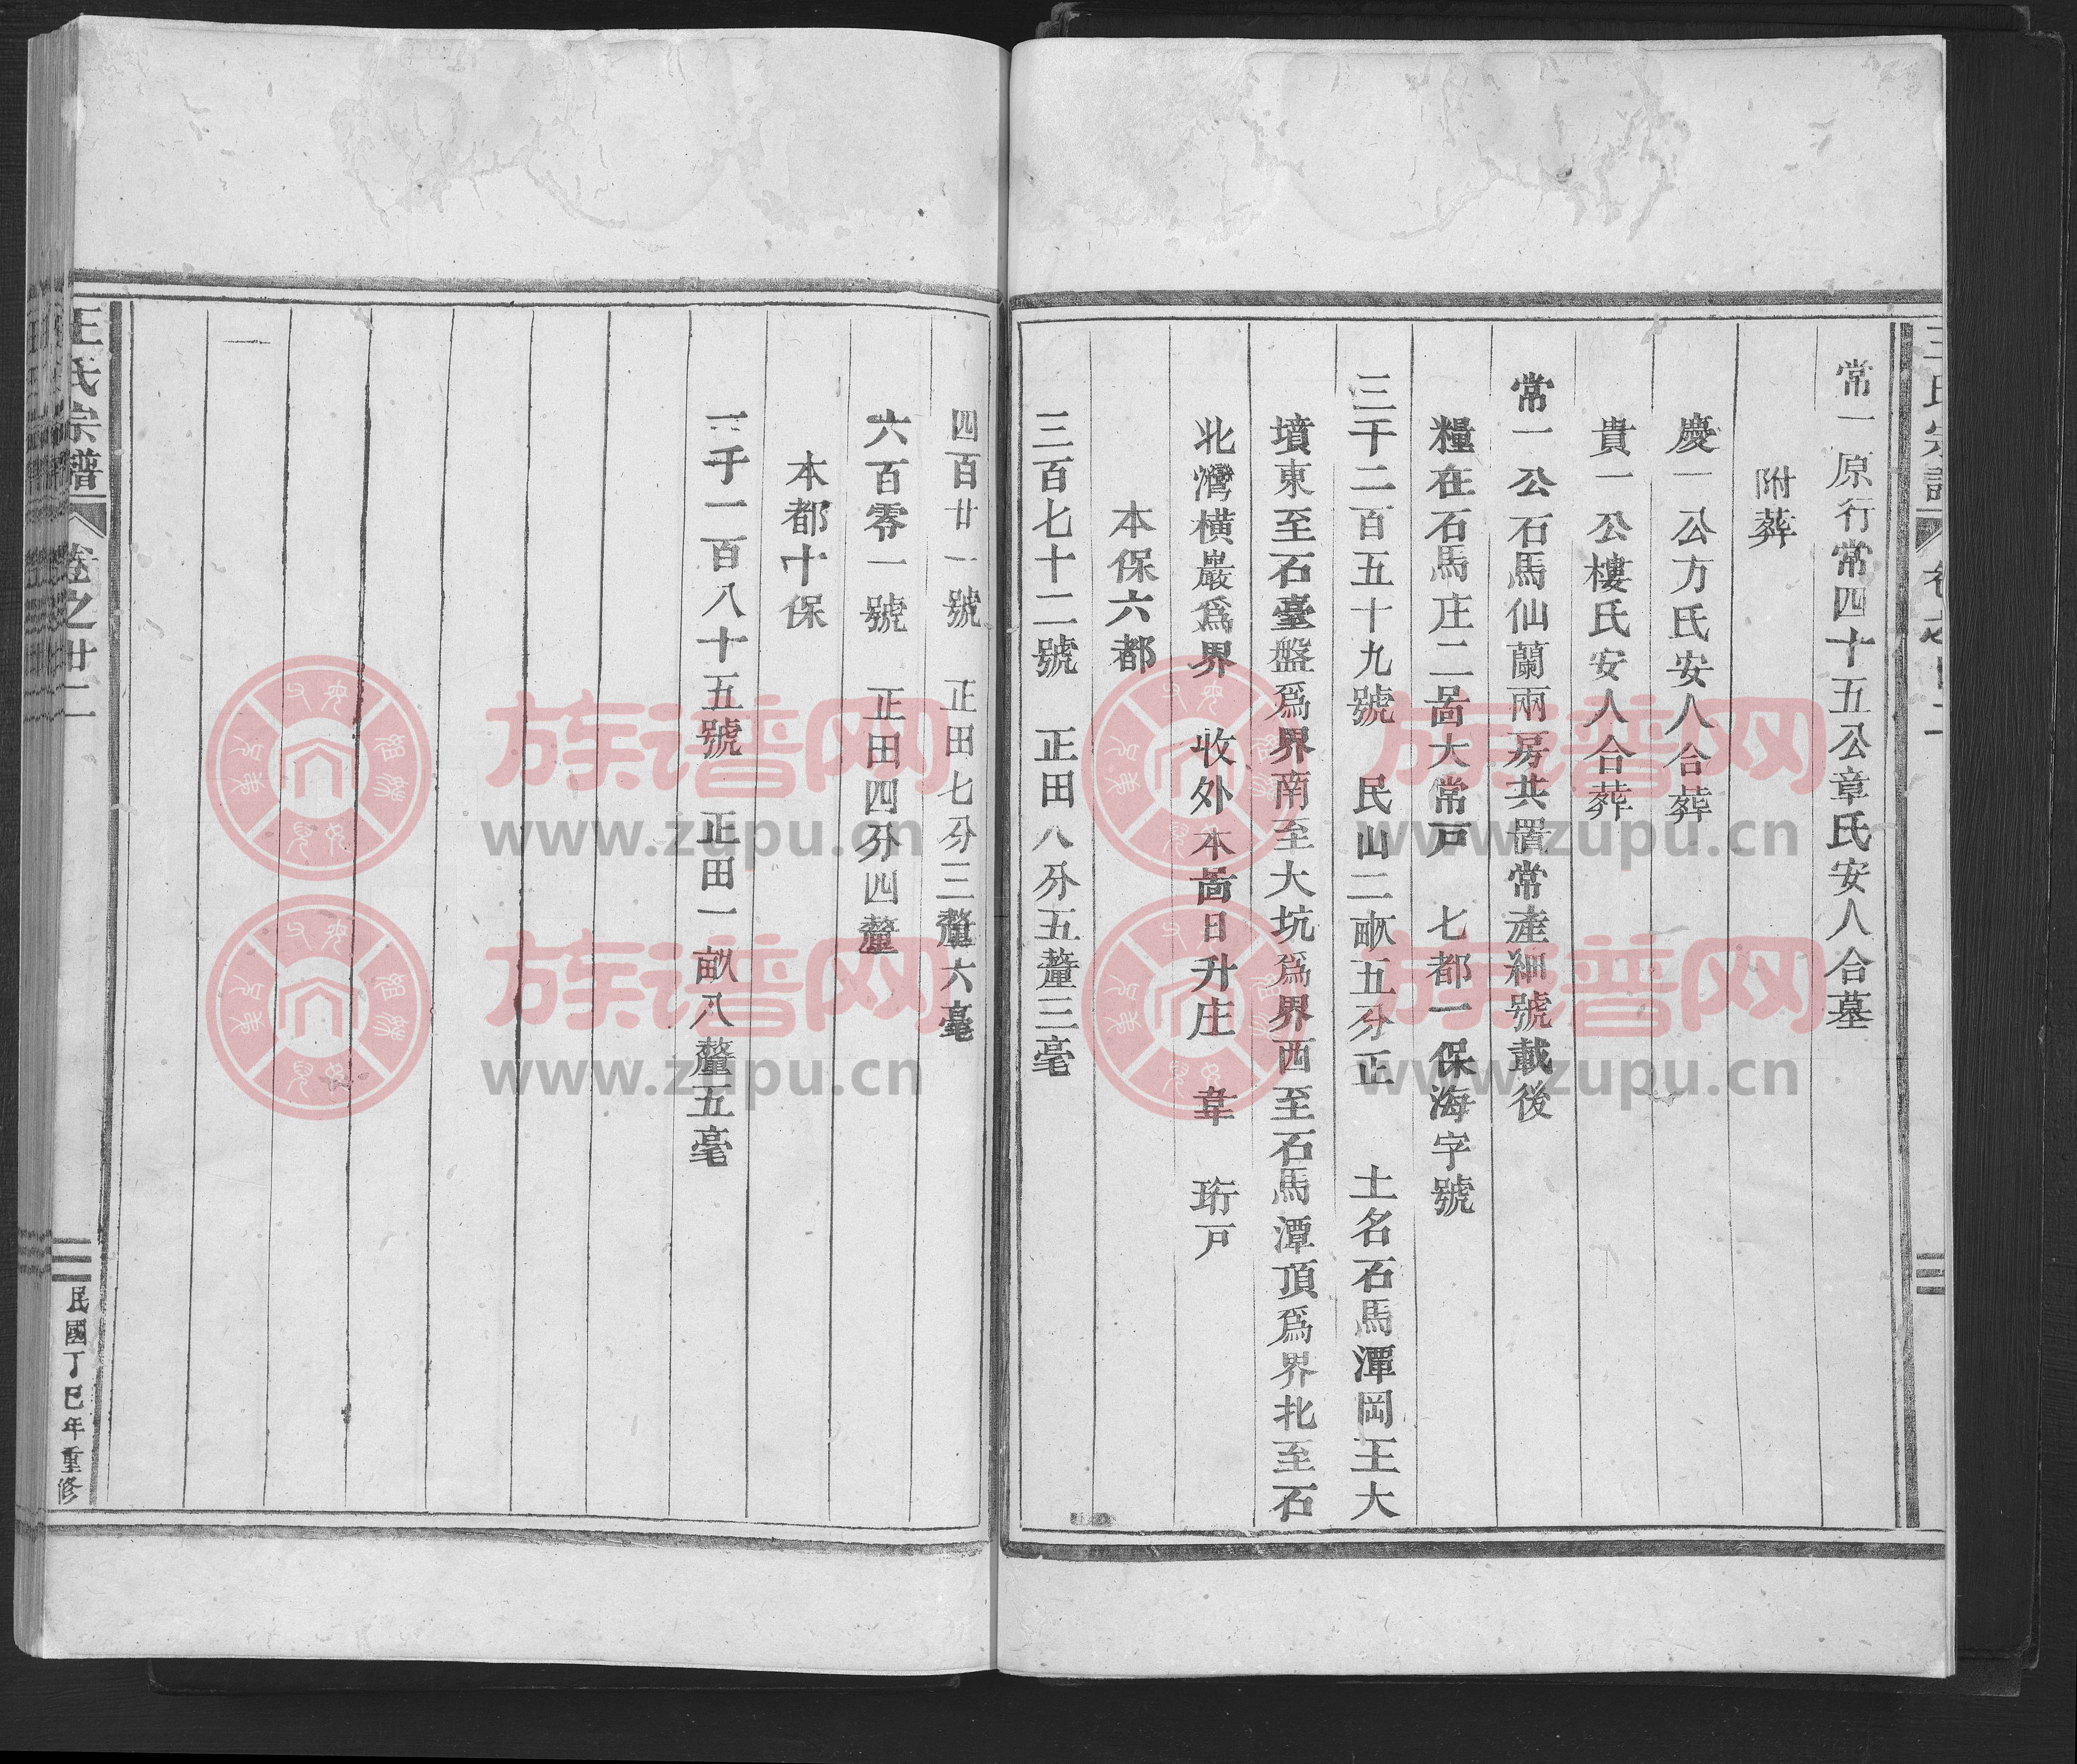 常一原行常四十五公章氏安人合墓
附葬
慶一公方氏安人合葬
貴一公樓氏安人合葬
常一公石馬仙蘭兩房共置常產細號載後
糧在石馬庄二啚大常戸 七都一保海字號
三千二百五十九號 民山二畝五分正 土名石馬潭岡王大
墳東至石臺盤爲界南至大坑爲界西至石馬潭頂爲界北至石
北灣橫巖爲界 收外本啚日升庄 韋 珩戸
本保六都
三百七十二號 正田八分五釐三毫
四百廿一號 正田七分三釐六毫
六百零一號 正田四分四釐
本都十保
二千一百八十五號 正田一畝八釐五毫
王氏宗譜 卷之廿二
民國丁巳年重修
族谱网
www.zupu.cn
族谱网
www.zupu.cn
族谱网
www.zupu.cn
族谱网
www.zupu.cn